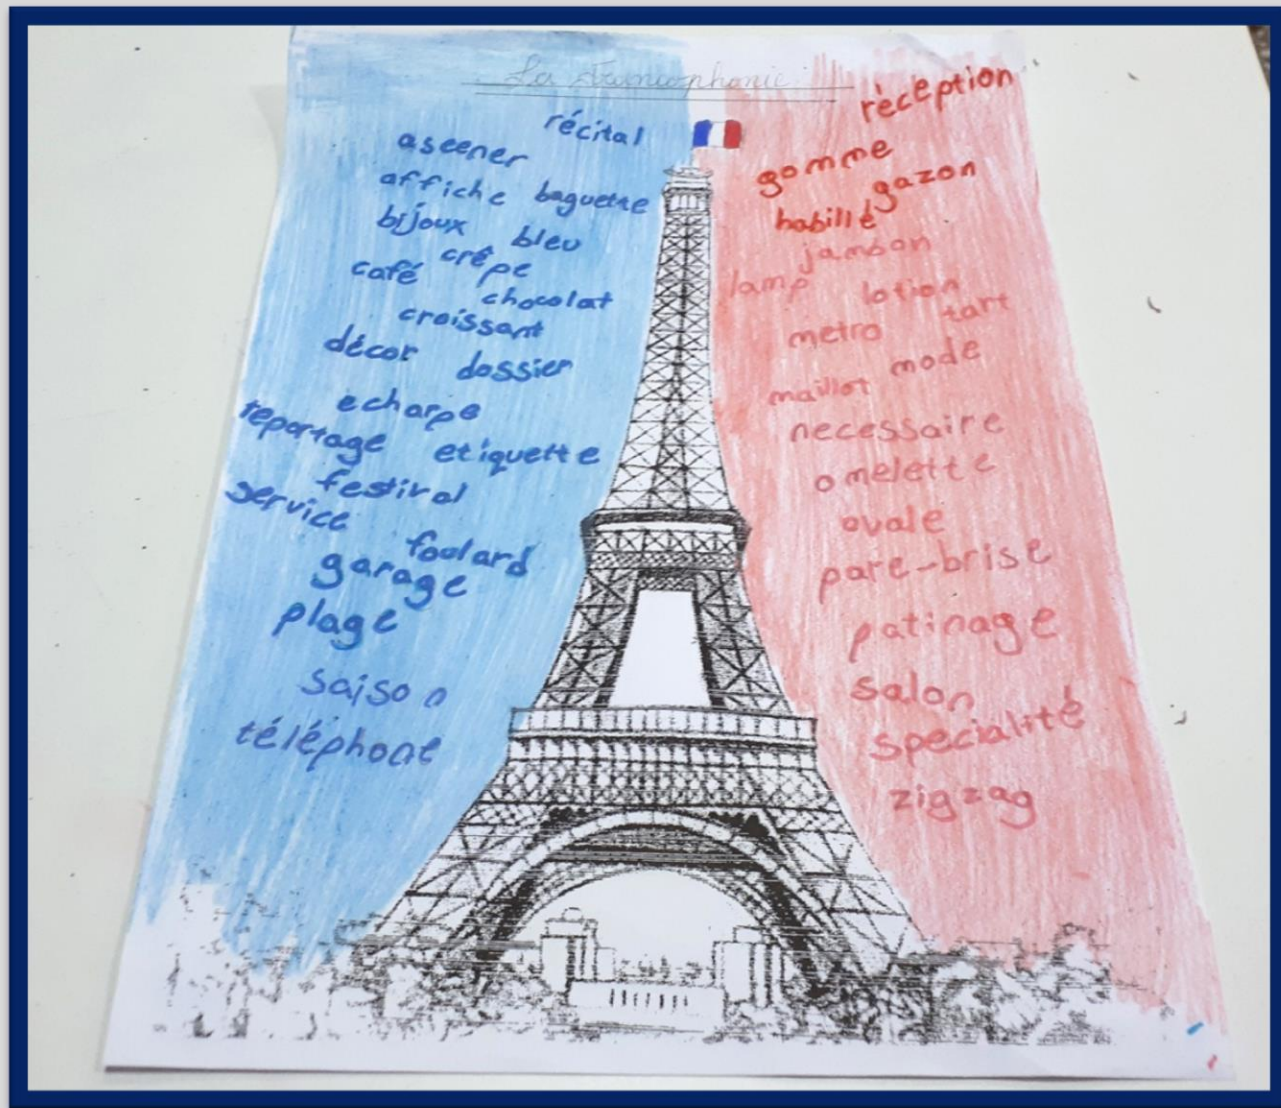 La Francophonie
récital
ascener
affiche baguette
bijoux bleu
crêpe
café
chocolat
croissant
décor dossier
echarpe
reportage etiquette
festival
service
foulard
garage
plage
saison
téléphone
réception
gomme
gazon
habillé
jambon
lamp lotion
tart
metro
mode
maillot
necessaire
omelette
ovale
pare-brise
patinage
salon
specialité
zigzag